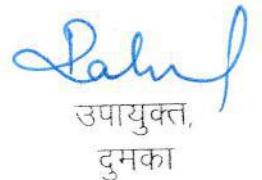 उपायुक्त,
दुमका